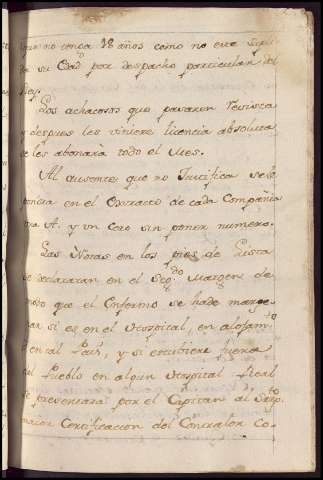 no tenga 18 años como no este supli
da su Edad por despacho particular del
Rey.
Los achacosos que pasaren Revista
y despues les viniere licencia absoluta
se les abonarà todo el Mes.
Al ausente que no Justifica se le
pondra en el Extracto de cada Compañia
una A. y un cero sin poner numero.
Las Notas en los pies de Lista
se declararan en el Segdo Margen de
modo que el Enfermo se ha de marge
nar si es en el Hospital, en alojamto
ò en tal Pais, y si estubiere fuera
del Pueblo en algun Hospital Real
se presentarà por el Capitan al Sargto
maior Certificacion del Contralor Co-